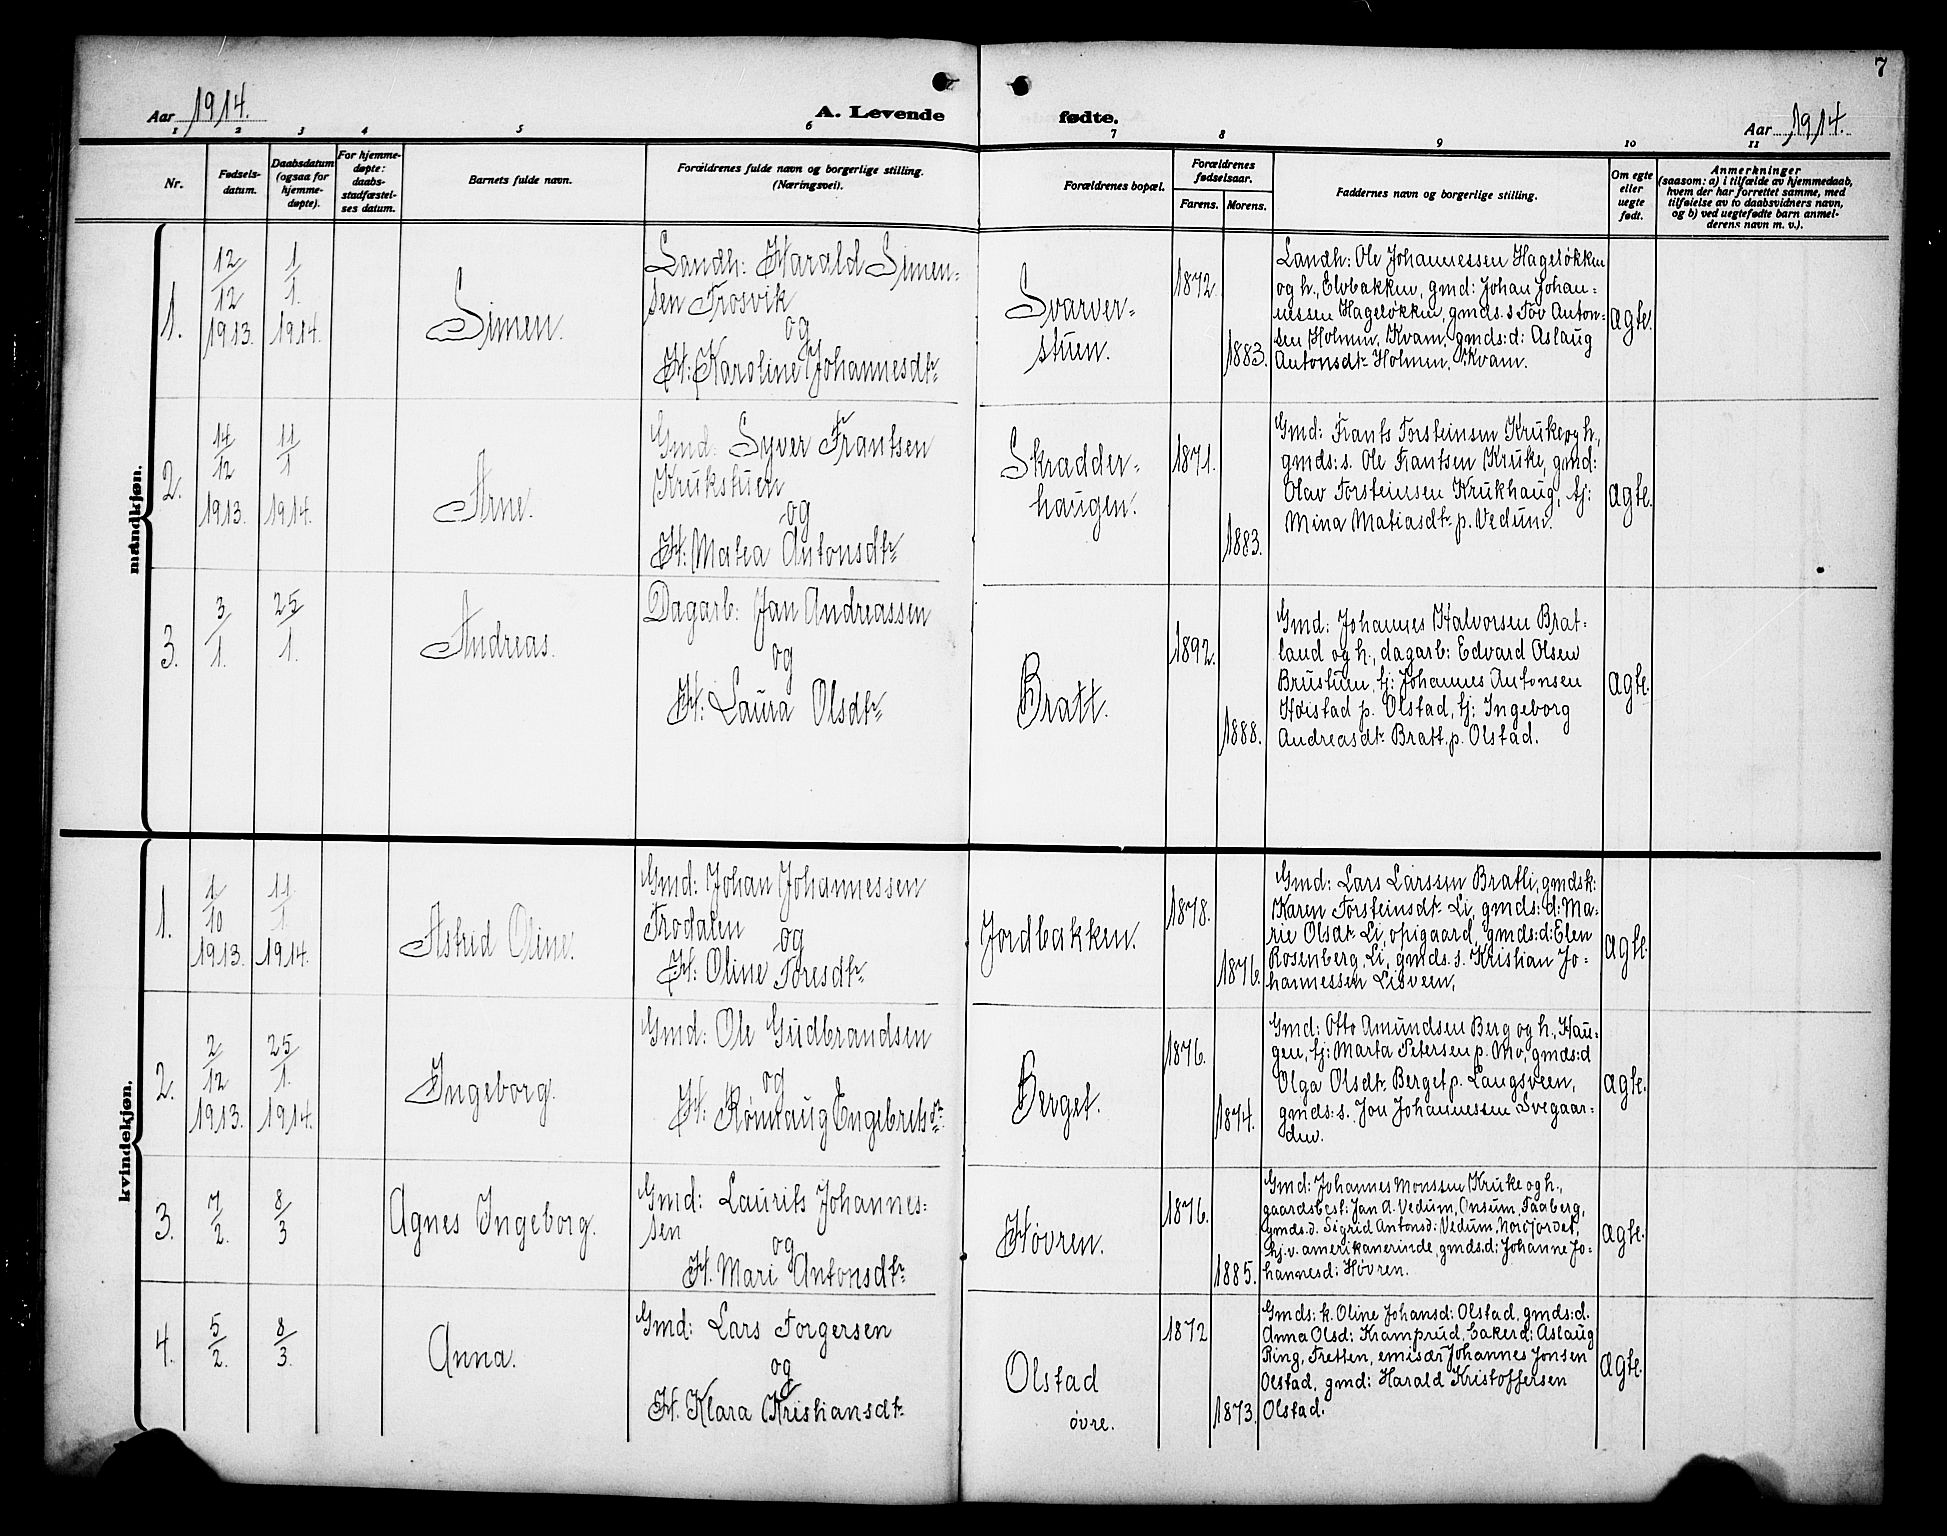 7
Aar 1914.
A. Levende
fødte.
Aar 1914.
1 2 3 4 5 6 7 8 9 10 11
Nr.
Fødsels-
datum.
Daabsdatum
(ogsaa for
hjemme-
døpte).
For hjemme-
døpte:
daabs-
stadfæstel-
ses datum.
Barnets fulde navn.
Forældrenes fulde navn og borgerlige stilling.
(Næringsvei).
Forældrenes bopæl.
Forældrenes
fødselsaar.
Farens. Morens.
Faddernes navn og borgerlige stilling.
Om egte
eller
uegte
født.
Anmerkninger
(saasom: a) i tilfælde av hjemmedaab,
hvem der har forrettet samme, med
tilføielse av to daabsvidners navn,
og b) ved uegtefødte barn anmel-
derens navn m. v.).
mandkjøn.
1.
12/12
1913.
1/1.
1914.
Simen.
Landh: Harald Simen-
sen Trosvik
og
H: Karoline Johannesdtr
Svarver-
stuen.
1872
1883.
Landh: Ole Johannessen Hageløkken
og h., Elvbakken, gmd: Johan Johan-
nessen Hageløkken, gmds. s Tov Anton-
sen Holmen, Kvam, gmds: d: Aslaug
Antonsdtr Holmen, Kvam.
ægte.
2.
14/12
1913.
11/1
1914.
Arne.
Gmd: Syver Frantsen
Krukstuen
og
H: Matea Antonsdtr
Skradder-
haugen.
1871.
1883.
Gmd: Frants Torsteinsen Kruke og h.,
gmds: s. Ole Frantsen Kruke, gmd:
Olav Torsteinsen Krukhaug, tj:
Mina Matiasdtr p. Vedum.
ægte.
3.
3/1.
25/1.
Andreas.
Dagarb: Jan Andreassen
og
H: Laura Olsdtr
Bratt.
1892.
1888.
Gmd: Johannes Halvorsen Brat-
land og h., dagarb: Edvard Olsen
Brustuen, tj: Johannes Antonsen
Høistad p. Olstad, tj: Ingeborg
Andreasdtr Bratt p. Olstad.
ægte.
kvindekjøn.
1.
1/10
1913.
11/1.
1914.
Astrid Oline.
Gmd: Johan Johannessen
Trodalen
og
H: Oline Toresdtr
Jordbakken.
1878.
1876.
Gmd: Lars Larssen Bratli, gmdsk:
Karen Torsteinsdtr Li, gmds: d: Ma-
rie Olsdtr Li, opigaard, gmds: d: Elen
Rosenberg, Li, gmds. s. Kristian Jo-
hannessen Lisveen.
ægte.
2.
2/12
1913.
25/1.
1914.
Ingeborg.
Gmd: Ole Gudbrandsen
og
H: Rønnaug Engebretsdtr
Berget.
1876.
1874.
Gmd: Otto Amundsen Berg og h., Hau-
gen, tj: Marta Petersen p. Mo, gmds: d
Olga Olsdtr Berget p. Laugsveen,
gmds: s. Jon Johannessen Svegaar-
den.
ægte.
3.
7/2.
8/3
Agnes Ingeborg.
Gmd: Laurits Johannes-
sen
og
H. Mari Antonsdtr
Høvren.
1876.
1885.
Gmd: Johannes Monssen Kruke og h.,
gaardsbest: Jan A. Vedum, Onsum, Faaberg,
gmds. d. Sigrid Antonsd: Vedum, Norfjordet,
hj. v. amerikanerinde, gmds. d: Johanne Jo-
hannesd: Høvren.
ægte.
4.
5/2.
8/3.
Anna.
Gmd: Lars Torgersen
og
H. Klara Kristiansdtr
Olstad
øvre.
1872
1873.
Gmds: k. Oline Johansd: Olstad, gmds: d.
Anna Olsd: Kramprud, bakerd: Aslaug
Ring, Tretten, emisær Johannes Jonsen
Olstad, gmd: Harald Kristoffersen
Olstad.
ægte.